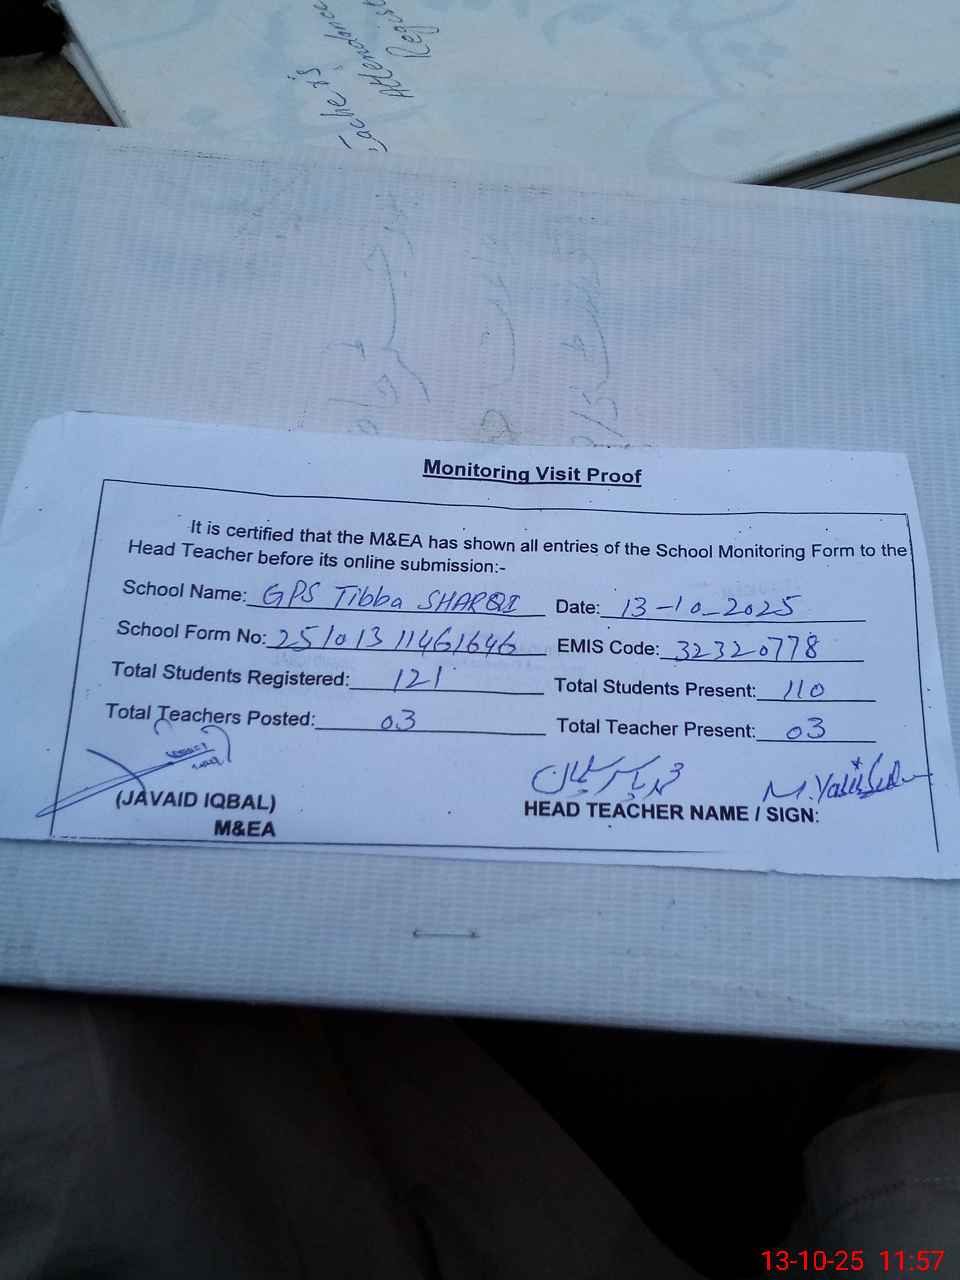 Teacher's
Attendance
Regist
Monitoring Visit Proof
It is certified that the M&EA has shown all entries of the School Monitoring Form to the
Head Teacher before its online submission:-
School Name: GPS Tibba SHARQI Date: 13-10-2025
School Form No: 25101311461646 EMIS Code: 32320778
Total Students Registered: 121 Total Students Present: 110
Total Teachers Posted: 03 Total Teacher Present: 03
(JAVAID IQBAL) HEAD TEACHER NAME / SIGN:
M&EA
13-10-25 11:57